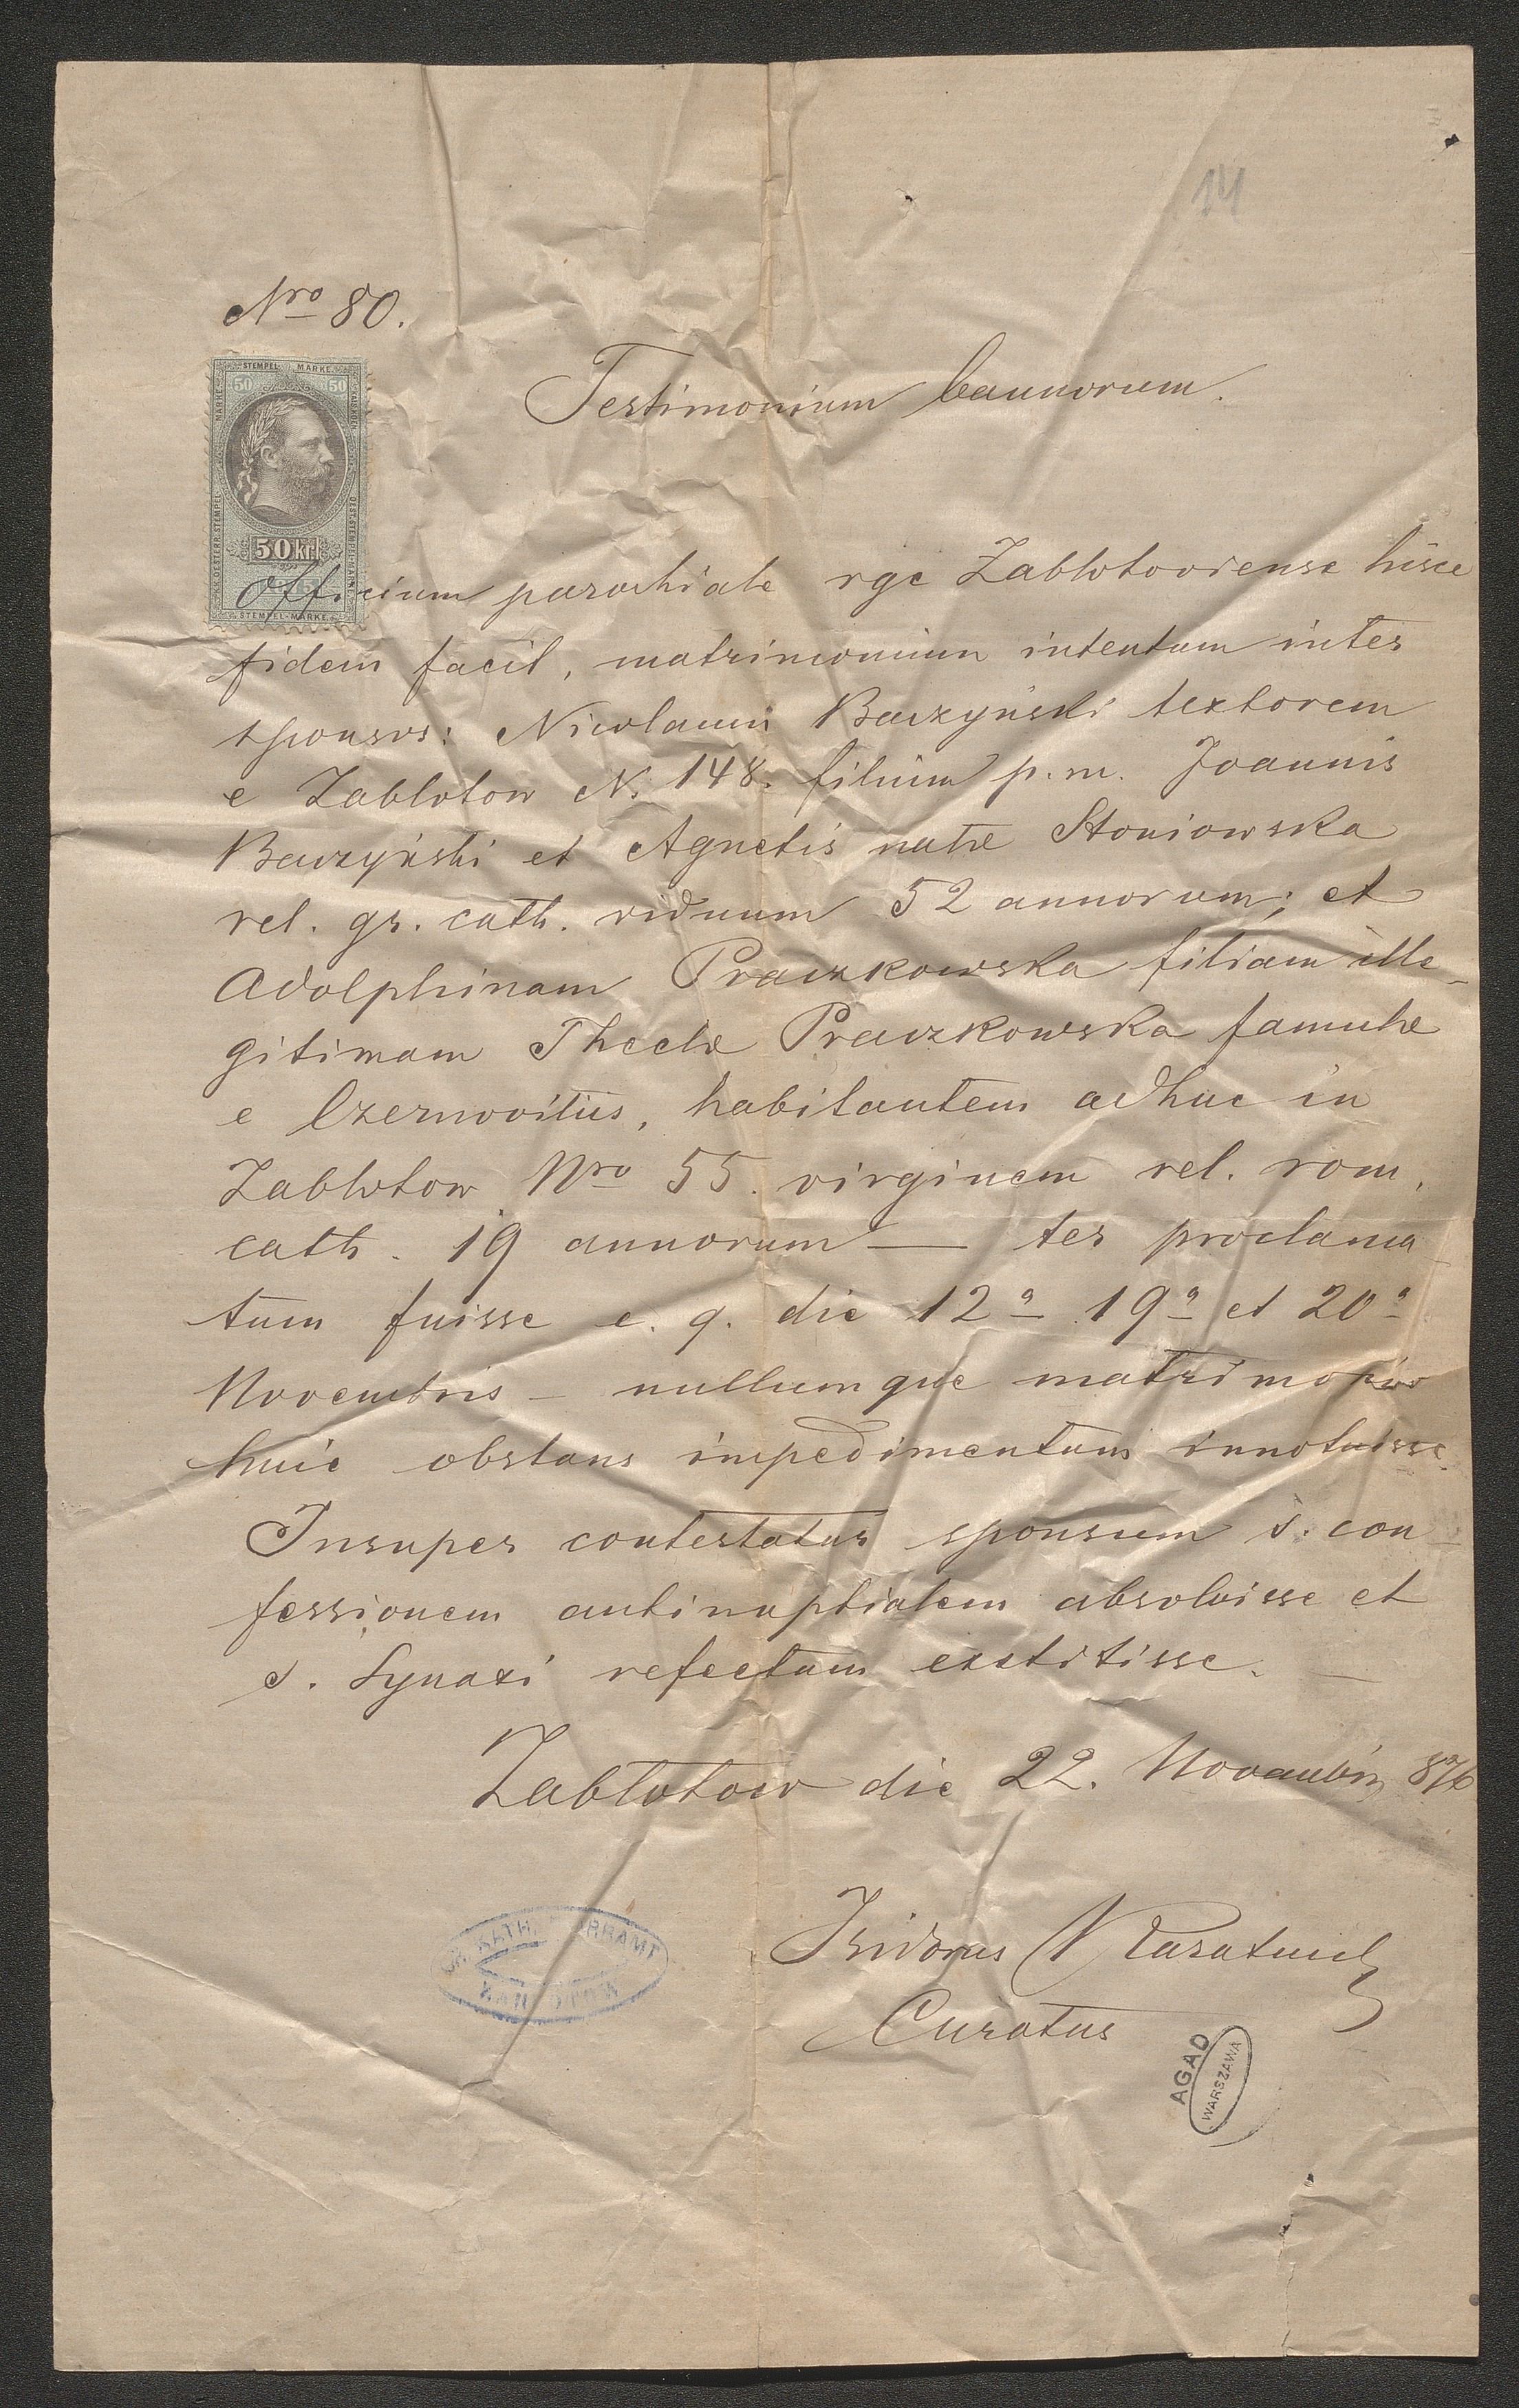 14
Nro 80.
STEMPEL MARKE
50 50
50 kr.
STEMPEL-MARKE
Testimonium bannorum.
Officium parochiale rgc Zablotoviense hisce
fidem facit, matrimonium intentum inter
sponsos: Nicolaum Baczyński textorem
e Zablotow N. 148. filium p.m. Joannis
Baczyński et Agnetis natæ Stoniowska
rel. gr. cath. viduum 52 annorum; et
Adolphinam Praczkowska filiam ille-
gitimam Theclæ Praczkowska famulæ
e Czernovitiis, habitantem adhuc in
Zablotow Nro 55. virginem rel. rom.
cath. 19 annorum — ter proclama
tum fuisse e. q. die 12a 19a et 20a
Novembris – nullumque matrimonio
huic obstans impedimentum innotuisse.
Insuper contestatur sponsum s. con-
fessionem antinuptialem absolvisse et
s. Synaxi refectum exstitisse. —
Zablotow die 22. Novembris 876
Isidorus
Curatus
AGAD
WARSZAWA